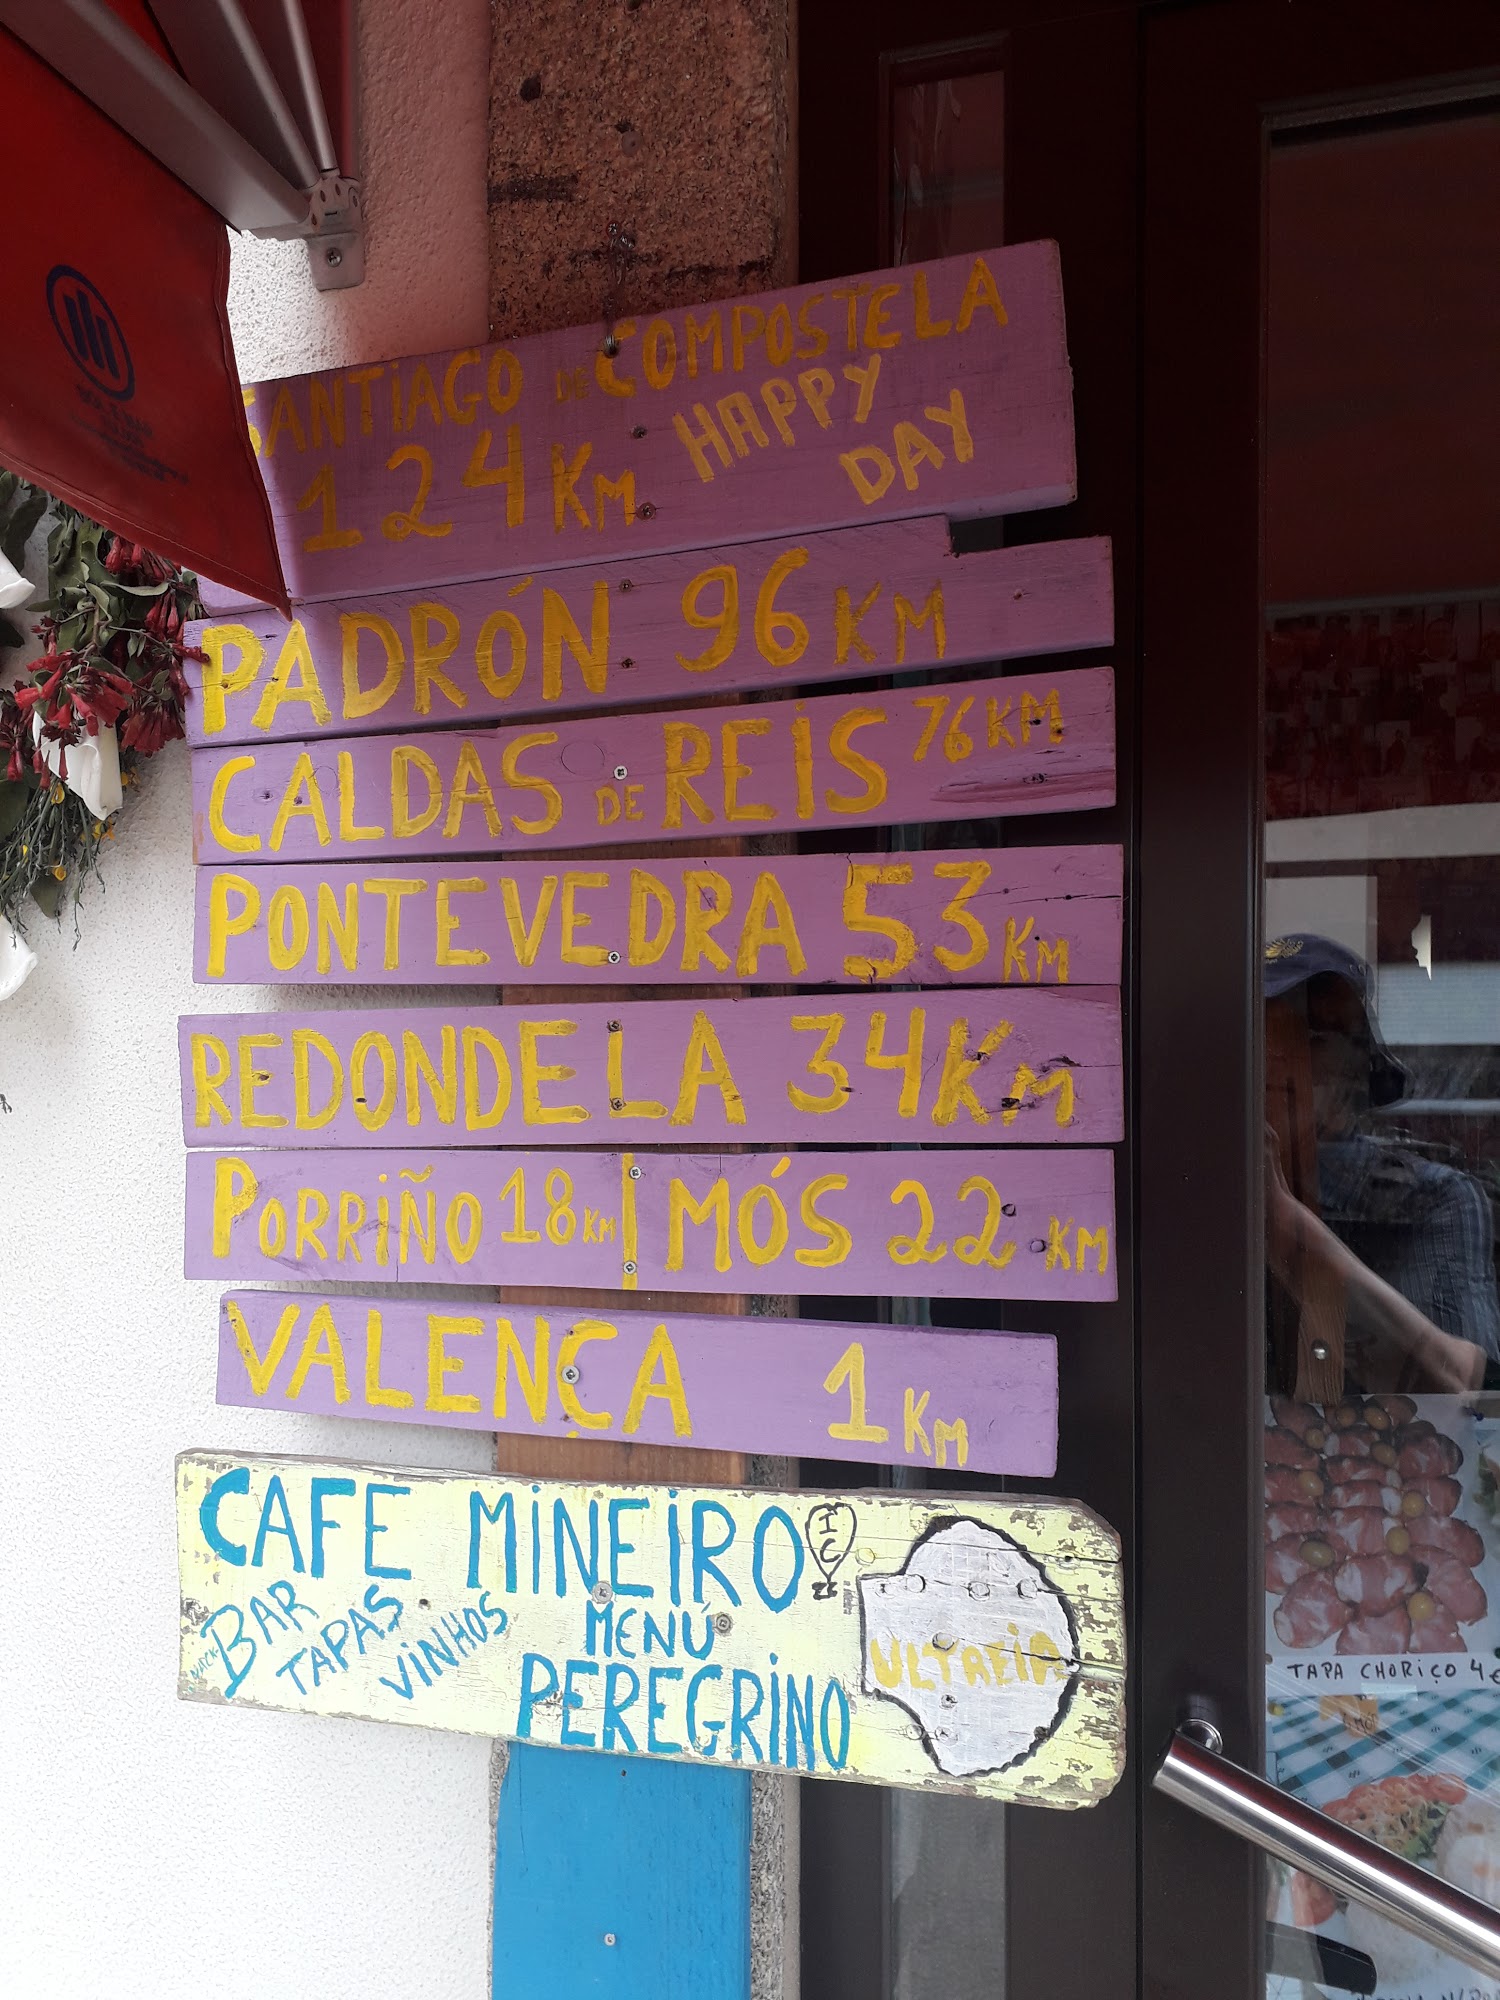 SANTIAGO DE COMPOSTELA
124 KM HAPPY DAY
PADRÓN 96 KM
CALDAS DE REIS 76 KM
PONTEVEDRA 53 KM
REDONDELA 34 KM
PORRIÑO 18 KM | MÓS 22 KM
VALENÇA 1 KM
CAFE MINEIRO
BAR
TAPAS
VINHOS
MENÚ
PEREGRINO
ULTREIA
TAPA CHORIÇO 4€